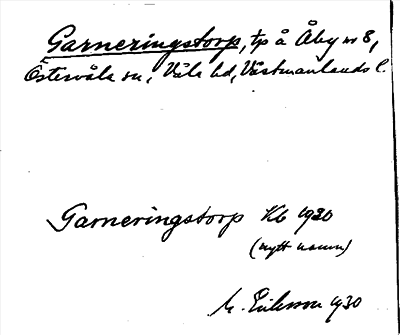 Garneringstorp, tp å Åby nr 8,
Östervåla sn, Våla hd, Västmanlands l.
Garneringstorp Kb 1920
(nytt namn)
M. Eriksson 1930